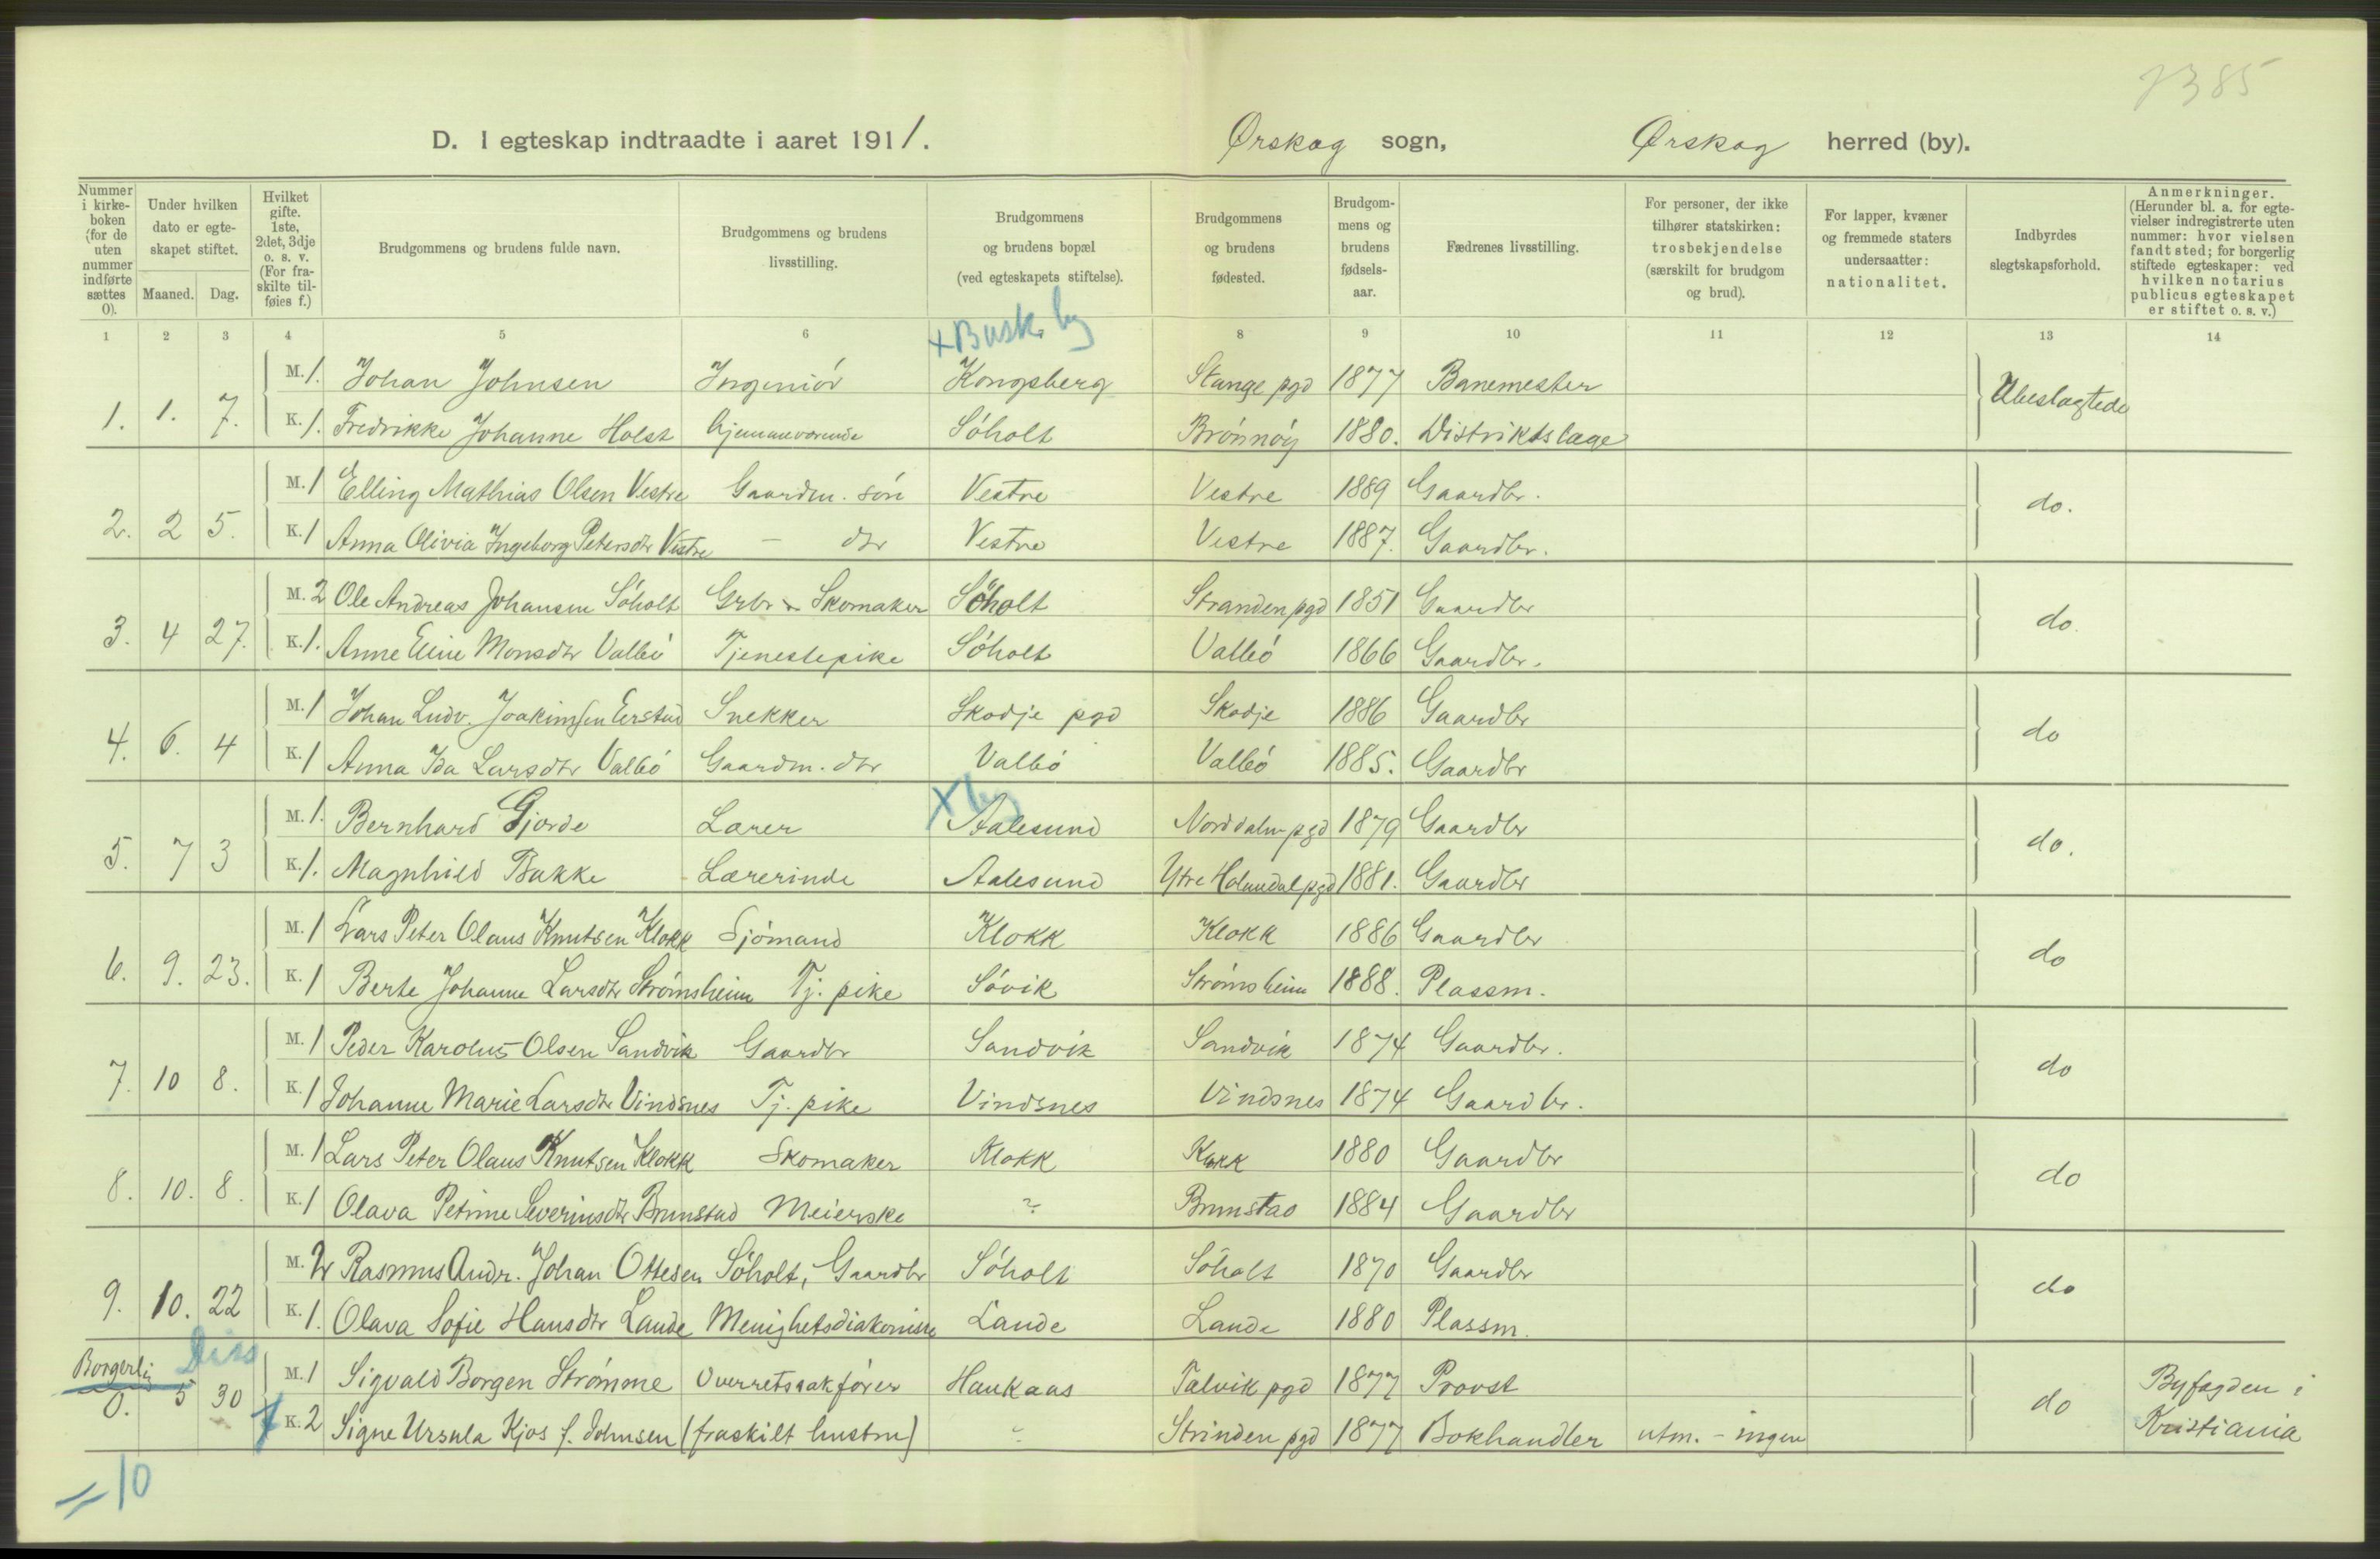 7385
D. I egteskap indtraadte i aaret 1911. Ørskog sogn, Ørskog herred (by).
Nummer i kirkeboken (for de uten nummer indførte sættes 0).
Under hvilken dato er egteskapet stiftet.
Maaned. Dag.
Hvilket gifte. 1ste, 2det, 3dje o. s. v. (For fraskilte tilføies f.)
Brudgommens og brudens fulde navn.
Brudgommens og brudens livsstilling.
Brudgommens og brudens bopæl (ved egteskapets stiftelse).
Brudgommens og brudens fødested.
Brudgommens og brudens fødselsaar.
Fædrenes livsstilling.
For personer, der ikke tilhører statskirken: trosbekjendelse (særskilt for brudgom og brud).
For lapper, kvæner og fremmede staters undersaatter: nationalitet.
Indbyrdes slegtskapsforhold.
Anmerkninger. (Herunder bl. a. for egtevielser indregistrerte uten nummer: hvor vielsen fandt sted; for borgerlig stiftede egteskaper: ved hvilken notarius publicus egteskapet er stiftet o. s. v.)
1 2 3 4 5 6 8 9 10 11 12 13 14
+ Busk. by
M. 1. Johan Johnsen Ingeniör Kongsberg Stange pgd 1877 Banemester
1. 1. 7. K. 1. Fredrikke Johanne Holst hjemmeværende Söholt Brönnöy 1880. Distriktslæge Ubeslægtede
M. 1 Elling Mathias Olsen Vestre Gaardm. sön Vestre Vestre 1889 Gaardbr.
2. 2 5. K. 1 Anna Olivia Ingeborg Petersdtr Vestre — dtr Vestre Vestre 1887. Gaardbr. do.
M. 2 Ole Andreas Johansen Söholt Grbr & Skomaker Söholt Stranden pgd 1851 Gaardbr
3. 4 27. K. 1. Anne Eline Monsdtr Valbö Tjenestepike Söholt Valbö 1866 Gaardbr. do.
M. 1 Johan Ludv. Joakimsen Eerstad Snekker Skodje pgd Skodje 1886 Gaardbr
4. 6. 4 K. 1 Anna Ida Larsdtr Valbö Gaardm. dtr Valbö Valbö 1885. Gaardbr do
+ by
M. 1. Bernhard Gjorde Lærer Aalesund Norddalen pgd 1879 Gaardbr
5. 7 3 K. 1. Magnhild Bakke Lærerinde Aalesund Ytre Holmedal pgd 1881. Gaardbr do.
M. 1 Lars Peter Olaus Knutsen Klokk Sjömand Klokk Klokk 1886 Gaardbr
6. 9. 23. K. 1 Berte Johanne Larsdtr Strömsheim Tj. pike Sövik Strömsheim 1888. Plassm. do
M. 1 Peder Karolus Olsen Sandvik Gaardbr Sandvik Sandvik 1874 Gaardbr.
7. 10 8. K. 1 Johanne Marie Larsdtr Vindsnes Tj. pike Vindsnes Vindsnes 1874 Gaardbr. do
M. 1 Lars Peter Olaus Knutsen Klokk Skomaker Klokk Klokk 1880 Gaardbr
8. 10. 8. K. 1 Olava Petrine Severinsdtr Brunstad Meierske ? Brunstad 1884 Gaardbr do
M. 2 Rasmus Andr. Johan Ottesen Söholt, Gaardbr Söholt Söholt 1870 Gaardbr
9. 10. 22 K. 1. Olava Sofie Hansdtr Lande Menighetsdiakonisse Lande Lande 1880 Plassm. do
Borgerlig Diss
M. 1 Sigvald Borgen Strömme Overretssakförer Haukaas Talvik pgd 1877 Provst
0. 5 30 K. 2 Signe Ursula Kjos f. Johnsen (fraskilt hustru) Strinden pgd 1877 Bokhandler utm. - ingen do Byfogden i Kristiania
= 10